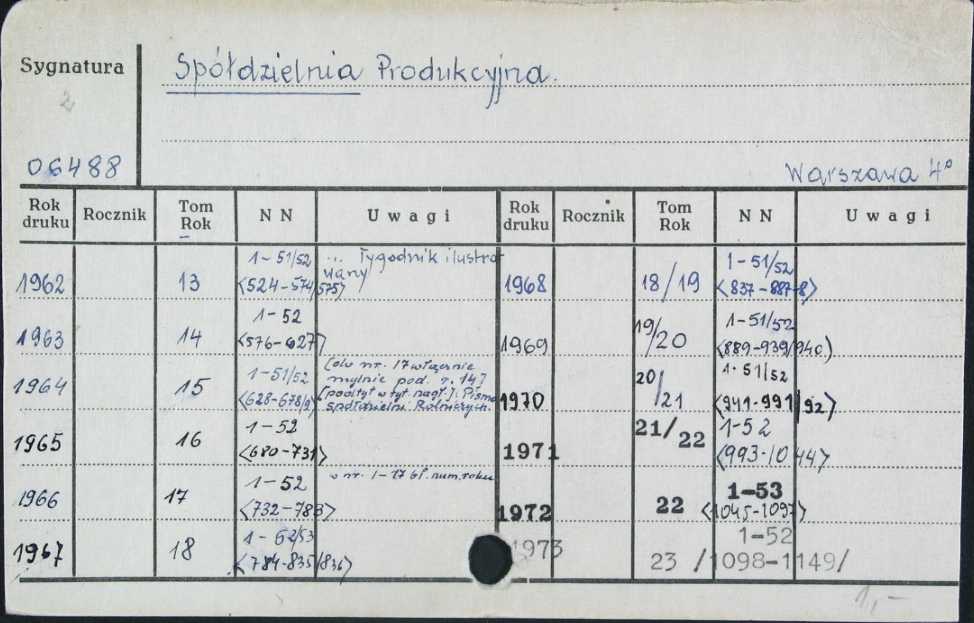 Sygnatura
2
06488
Spółdzielnia Produkcyjna.
Warszawa 4°
Rok druku Rocznik Tom Rok NN Uwagi Rok druku Rocznik Tom Rok NN Uwagi
1962 13 1-51/52 <524-574/575> ... Tygodnik ilustrowany
1963 14 1-52 <576-627>
1964 15 1-51/52 <628-678/9> [do nr. 17 włącznie
mylnie pod. r. 14]
[podtyt. w tyt. nagł.]: Pismo
spółdzielni Rolniczych.
1965 16 1-52 <680-731>
1966 17 1-52 <732-783> w nr. 1-17 bł. num. roku
1967 18 1-52/53 <784-835/836>
1968 18/19 1-51/52 <837-887-8>
1969 19/20 1-51/52 <889-939/940>
1970 20/21 1-51/52 <941-991/92>
1971 21/22 1-52 <993-1044>
1972 22 1-53 <1045-1097>
1973 23 1-52 /1098-1149/
1,-